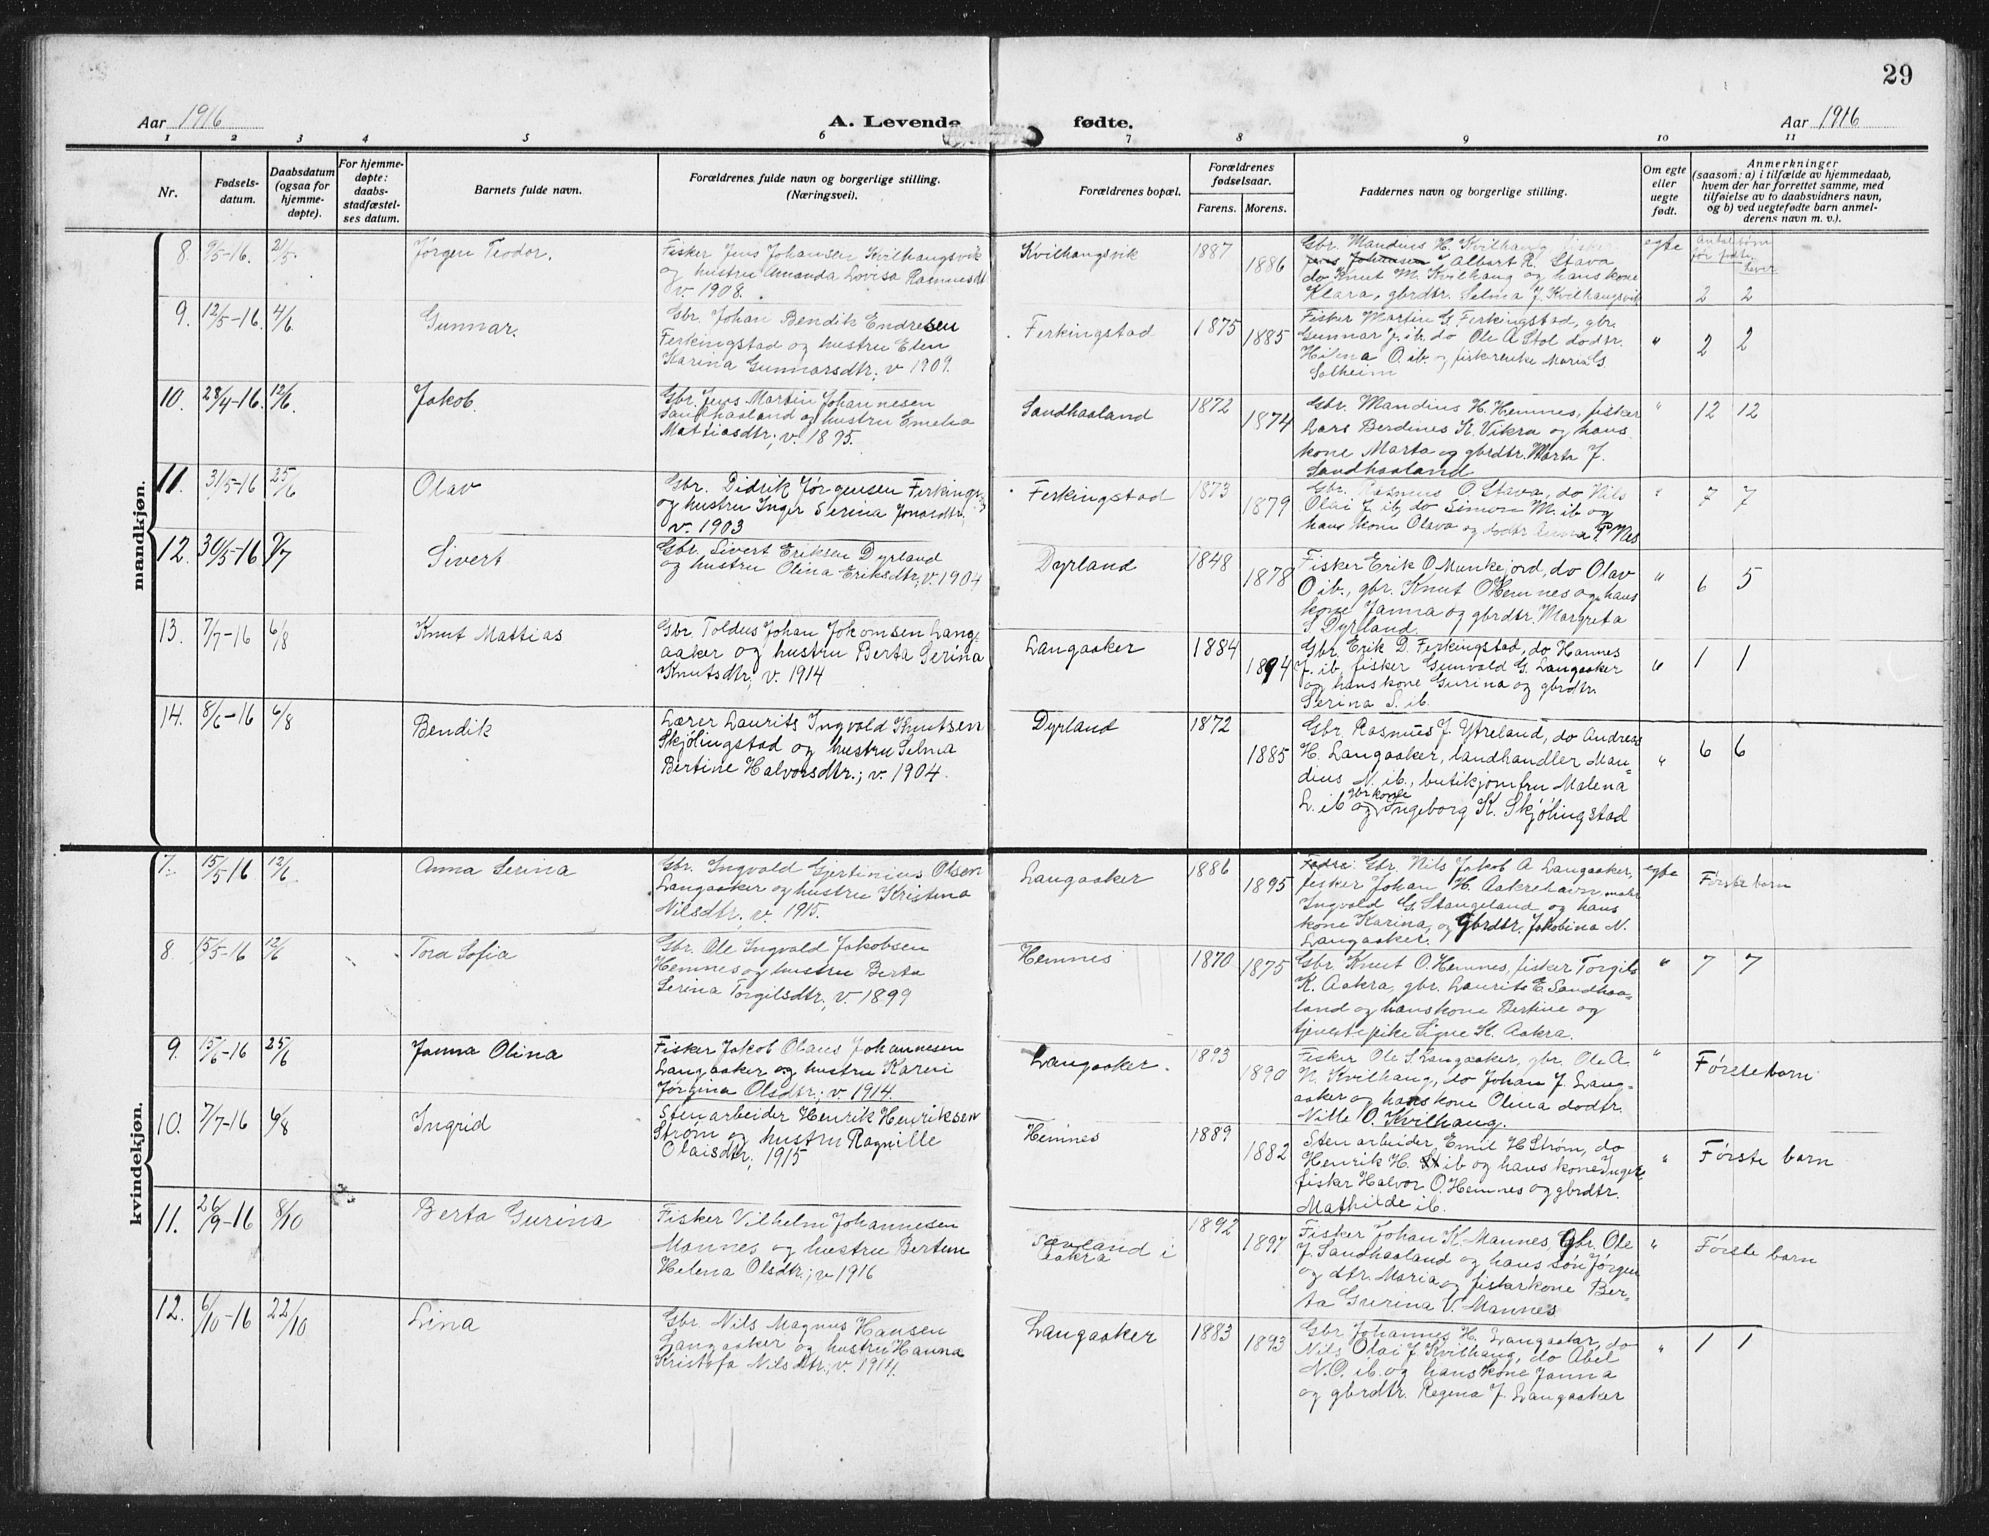 29
Aar 1916
A. Levende fødte.
Aar 1916
1 2 3 4 5 6 7 8 9 10 11
Nr.
Fødsels-
datum.
Daabsdatum
(ogsaa for
hjemme-
døpte).
For hjemme-
døpte:
daabs-
stadfæstel-
ses datum.
Barnets fulde navn.
Forældrenes fulde navn og borgerlige stilling.
(Næringsvei).
Forældrenes bopæl.
Forældrenes
fødselsaar.
Farens. Morens.
Faddernes navn og borgerlige stilling.
Om egte
eller
uegte
født.
Anmerkninger
(saasom: a) i tilfælde av hjemmedaab,
hvem der har forrettet samme, med
tilføielse av to daabsvidners navn,
og b) ved uegtefødte barn anmel-
derens navn m. v.).
mandkjøn.
8. 9/5-16. 21/5. Jørgen Teodor.
Fisker Jens Johansen Kvilhaugsvik
og hustru Amanda Lovisa Rasmusdt
v. 1908.
Kvilhaugsvik 1887 1886
Gbr. Mandius H. Kvilhaug fisker
Jens Johansen Albert R. Stava
do Knut M. Kvilhaug og hans kone
Klara, gbrdtr. Selma J. Kvilhaugsvik
egte
før fødte
lever
2 2
9. 12/5-16. 4/6. Gunnar.
Gbr. Johan Bendik Endresen
Ferkingstad og hustru Elen
Karina Gunnarsdtr; v 1909.
Ferkingstad 1875 1885
Fisker Martin G. Ferkingstad, gbr.
Gunnar J. ib. do Ole A Stol dodtr.
Hilma O. ib. og fiskerenke Maria G.
Solheim
" 2 2
10. 28/4-16. 12/6. Jakob.
Gbr. Jens Martin Johannesen
Sandhaaland og hustru Emelia
Mattiasdtr; v. 1895.
Sandhaaland 1872 1874
Gbr. Mandius H. Hemnes, fisker
Lars Berdines K. Vikra og hans
kone Marta og gbrdtr. Marta J.
Sandhaaland
" 12 12
11. 31/5-16 25/6 Olav
Gbr. Didrik Jørgensen Ferkings
og hustru Inger Serina Jonasdtr;
v. 1903
Ferkingstad 1873 1879
Gbr. Rasmus O. Stava, do Nils
Olai J. ib, do Simon M. ib og
hans kone Olava og dodtr Anna P Nes
" 7 7
12. 30/5-16 9/7 Sivert
Gbr. Sivert Eriksen Dyrland
og hustru Olina Eriksdtr; v. 1904
Dyrland 1848 1878
Fisker Erik O Munkejord, do Olav
O ib., gbr. Knut O Hemnes og hans
kone Janna og gbrdtr. Margreta
S. Dyrland.
" 6 5
13. 7/7-16 6/8 Knut Mattias
Gbr Toldus Johan Jakomsen Lang-
aaker og hustru Berta Serina
Knutsdtr; v. 1914
Langaaker 1884 1894
Gbr Erik D. Ferkingstad, do Hannes
J. ib. fisker Gunvald G. Langaaker
og hans kone Gurina og gbrdtr.
Serina S. ib.
" 1 1
14. 8/6-16 6/8 Bendik
Lærer Laurits Ingvald Knutsen
Skjølingstad og hustru Selma
Bertine Halvorsdtr.; v. 1904.
Dyrland 1872 1885
Gbr Rasmus J. Ytreland, do Andreas
H. Langaaker, landhandler Man-
dius N. ib., butikjomfru Malena
L. ib og gbrkone Ingeborg K. Skjølingstad
" 6 6
kvindekjøn.
7. 15/5 16 12/6 Anna Serina
Gbr. Ingvald Gjertinius Olsen
Langaaker og hustru Kristina
Nilsdtr, v. 1915.
Langaaker 1886 1895
Fadre: Gbr. Nils Jakob A Langaaker,
fisker Johan H. Aakrehavn, maler
Ingvald G. Stangeland og hans
kone Karina, og gbrdtr. Jakobina N.
Langaaker.
egte Første barn
8. 15/5-16 12/6 Tora Sofia
Gbr. Ole Ingvald Jakobsen
Hemnes og hustru Berta
Serina Torgilsdtr; v. 1899
Hemnes 1870 1875
Gbr. Knut O. Hemnes, fisker Torgils
K. Aakra, gbr. Laurits E. Sandhaa-
land og hans kone Bertine og
tjenestepike Signe K. Aakra.
" 7 7
9. 15/6-16 25/6 Janna Olina
Fisker Jakob Olaus Johannesen
Langaaker og hustru Karen
Jørgina Olsdtr.; v. 1914.
Langaaker. 1893 1890
Fisker Ole S. Langaaker, gbr. Ole A.
N. Kvilhaug, do Johan J. Lang-
aaker og hans kone Olina dodtr.
Nille O. Kvilhaug.
" Første barn
10. 7/7-16 6/8 Ingrid
Stenarbeider Henrik Henriksen
Strøm og hustru Ragnille
Olaisdtr; 1915
Hemnes 1889 1882
Stenarbeider, Emil H Strøm, do
Henrik H. ib og hans kone Inger
fisker Halvor O. Hemnes og gbrdtr.
Mathilde ib.
" Første barn
11. 26/9-16 8/10 Berta Gurina
Fisker Vilhelm Johannesen
Mannes og hustru Bertine
Helena Olsdtr.; v. 1916
Sævland i
Aakra
1892 1897
Fisker Johan K. Mannes, Gbr. Ole
J. Sandhaaland og hans søn Jørgen
og dtr. Maria og fiskerkone Ber-
ta Gurina V. Mannes
" Første barn
12. 6/10-16 22/10 Lina
Gbr. Nils Magnus Hansen
Langaaker og hustru Hanna
Kristofa Nilsdtr; v. 1914.
Langaaker 1883 1893
Gbr. Johannes H. Langaaker, do
Nils Olai J. Kvilhaug, do Abel
N. O. ib. og hans kone Janna
og gbrdtr. Regina J. Langaaker
" 1 1